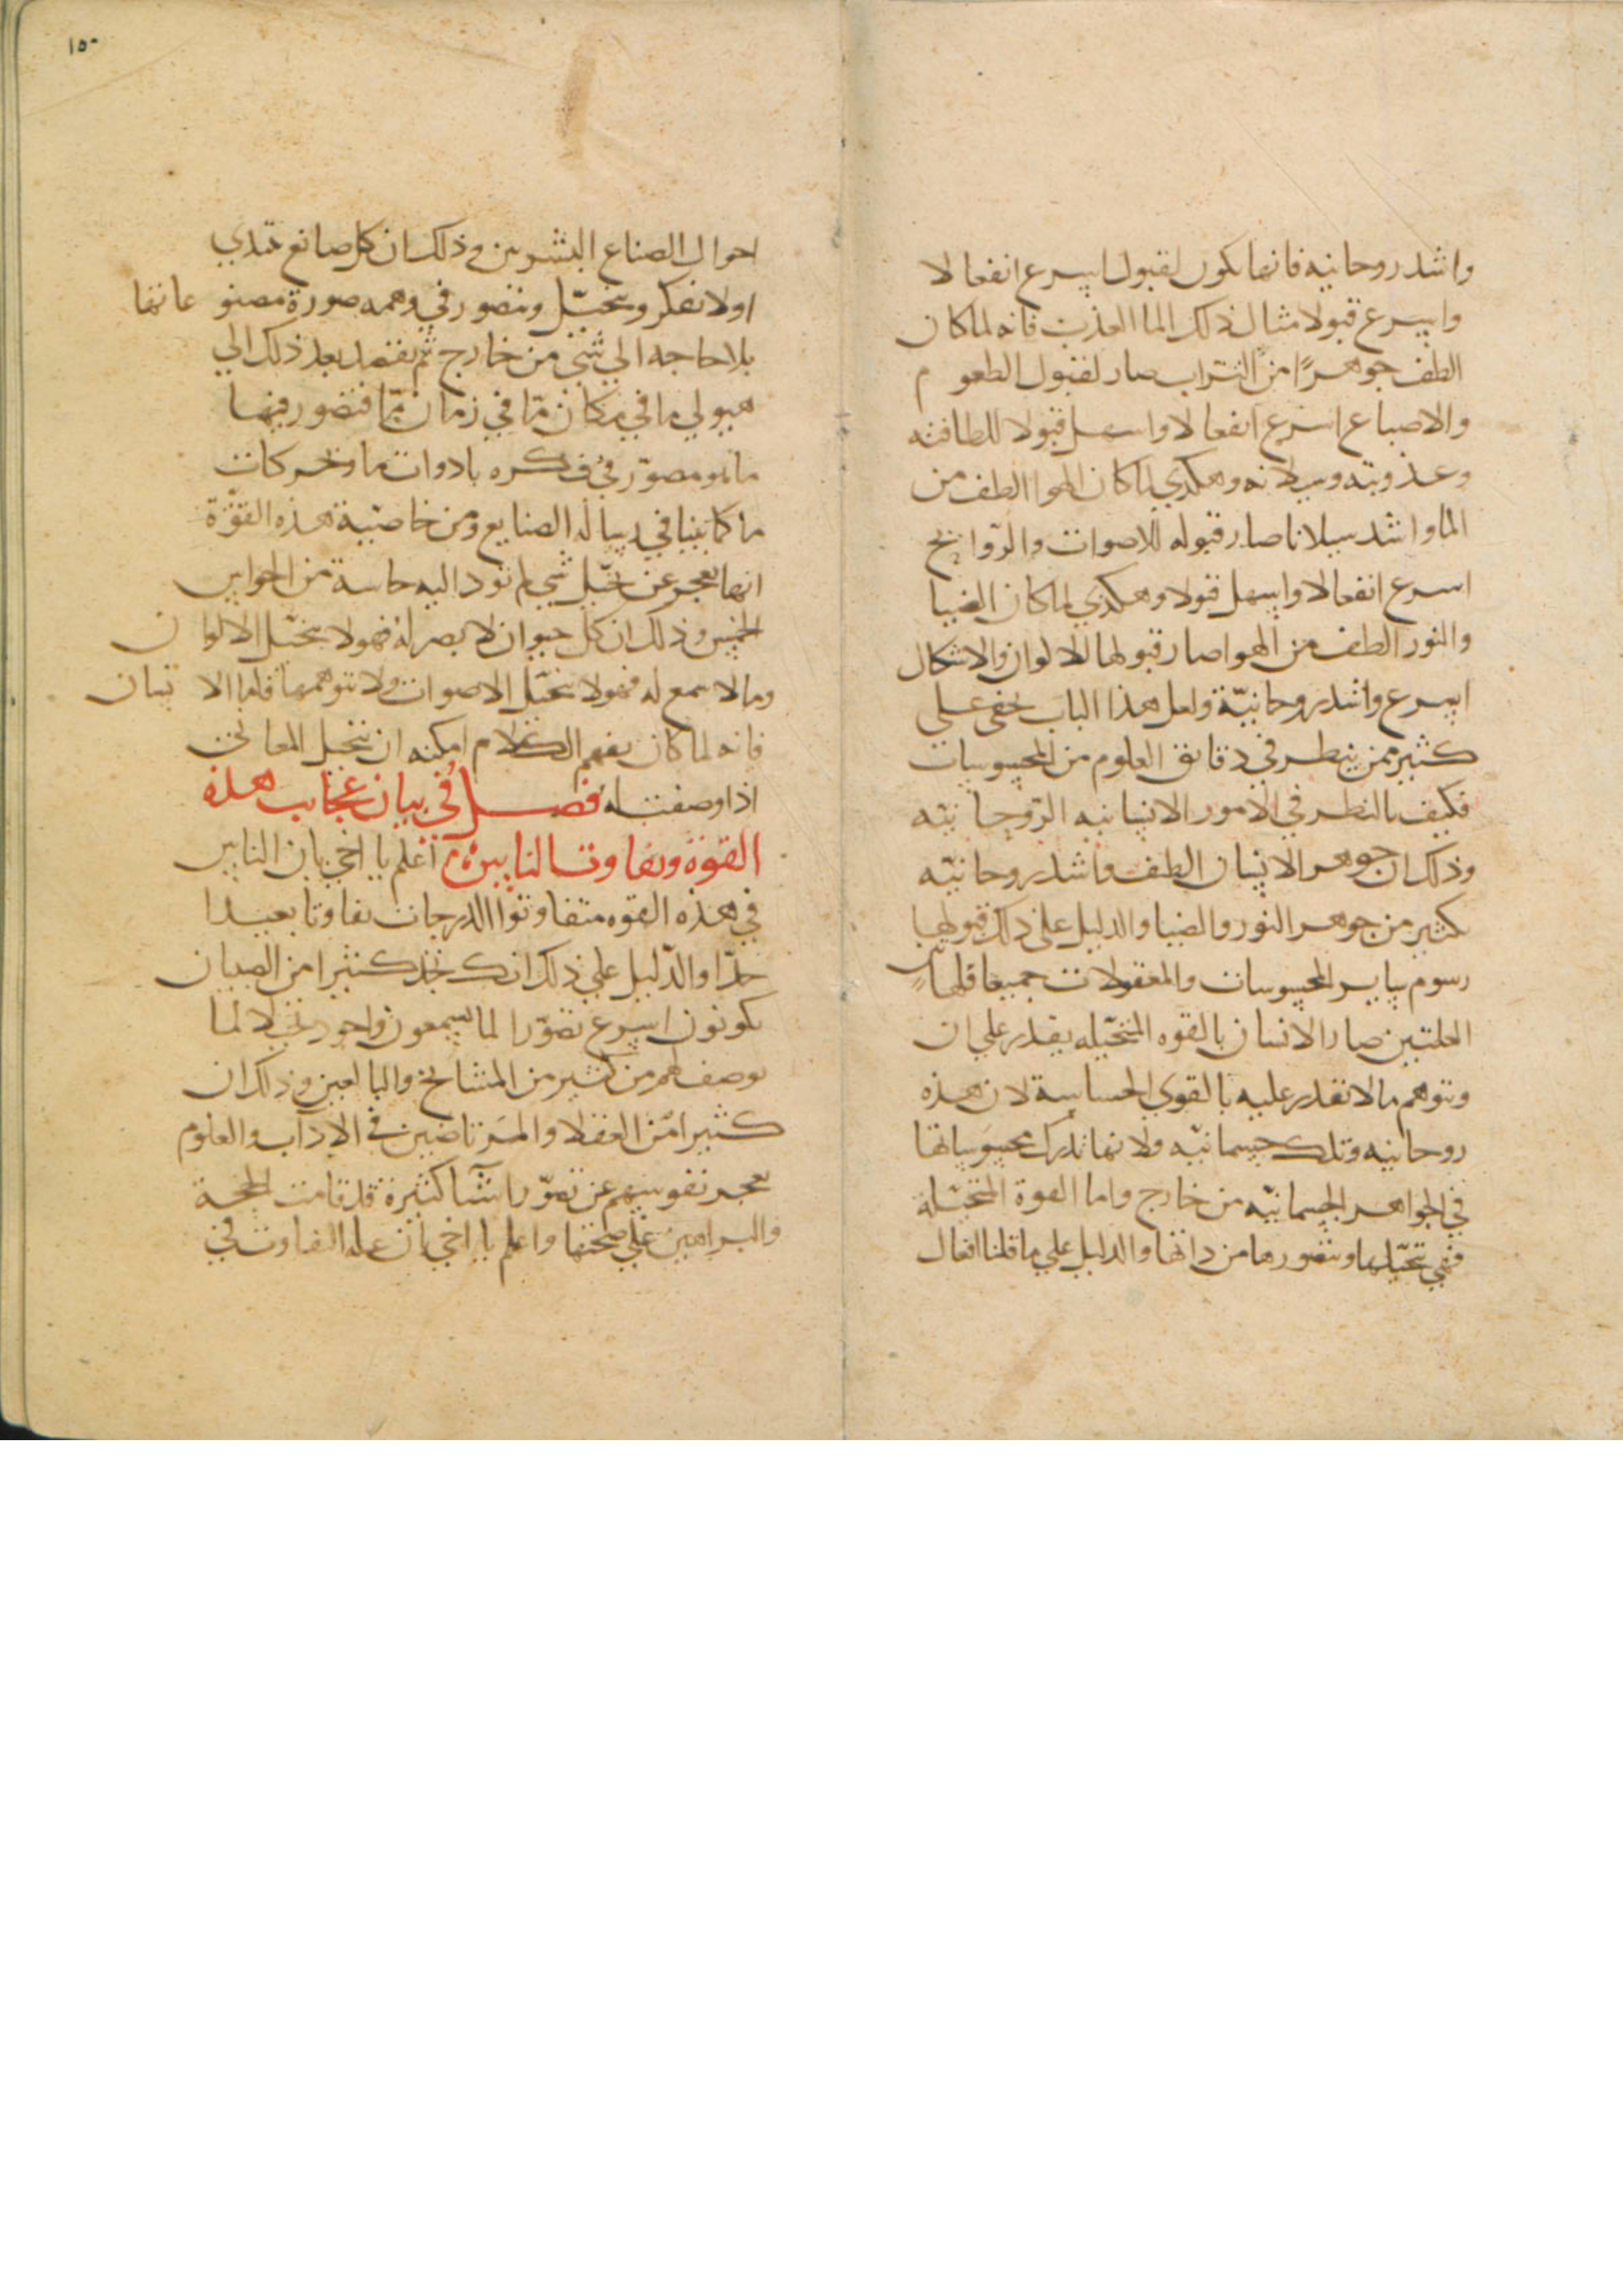 واشد روحانيه فانها يكون لقبول اسرع انفعالا
واسرع قبولا مثال ذلك الما العذب فانه لما كان
الطف جوهرًا من التراب صار لقبول الطعوم
والاصباع اسرع انفعالا واسهل قبولا للطافته
وعذوبته وسيلانه وهكدي لما كان الهوا الطف من
الما واشد سيلانا صار قبوله للاصوات والروايح
اسرع انفعالا واسهل قبولا وهكدي لما كان الضيا
والنور الطف من الهوا صار قبولها للالوان والاشكال
اسرع واشد روحانيّة ولعل هذا الباب يخفى علي
كثير ممن ينظر في دقايق العلوم من المحسوسات
فكيف بالنظر في الامور الانسانيه الروحانيّه
وذلك ان جوهر الانسان الطف واشد روحانيّه
كثير من جوهر النور والضيا والدليل على ذلك قبولها
رسوم ساير المحسوسات والمعقولات جميعا فلهاتين
العلتين صار الانسان بالقوه المتخيّله يقدر علي ان
وتوهم مالا تقدر عليه بالقوي الحساسة لان هذه
روحانيه وتلك جسمانيّه ولانها تدرك محسوساتها
في الجواهر الجسمانيّه من خارج واما القوة المتخيّلة
فهي تتخيّلها وتتصورها من ذاتها والدليل علي ما قلنا افعال
١٥٠
احوال الصناع البشريين وذلك ان كل صانع يبتدي
اولا بفكر ويتخيّل ويتصور في وهمه صورة مصنوعاتها
بلا حاجه الي شي من خارج ثم يقصد بعد ذلك الي
هيولي ما في مكان مّا في زمان مّا فتصور فيها
ما هو مصوّر في فكره بادوات ما وتحركات
ما كما بينا في رسالة الصنايع ومن خاصيّة هذه القوّة
انها تعجز عن تخيّل شي لم تود اليه حاسة من الحواس
الخمس وذلك ان كل حيوان لا بصر له فهو لا يتخيّل الالوان
وما لا سمع له فهو لا يتخيّل الاصوات ولا تتوهمها فاما الانسان
فانه لما كان يفهم الكلام امكنه ان يتخيل المعاني
اذا وصفت له فصل في بيان عجايب هذه
القوة وتفاوت الناس اعلم يا اخي بان الناس
في هذه القوه متفاوتوا الدرجات تفاوتا بعيدا
جدّا والدّليل علي ذلك انك تجد كثيرا من الصبيان
يكونون اسرع تصوّرا لما يسمعون واجود تخيلا لما
يوصف لهم من كثير من المشايخ والبالغين وذلك ان
كثيرا من العقلا والمرتاضين في الاداب والعلوم
تعجز نفوسهم عن تصوّر اشيا كثيرة قد قامت الحجة
والبراهين علي صحتها واعلم يا اخي بان علة التفاوت في